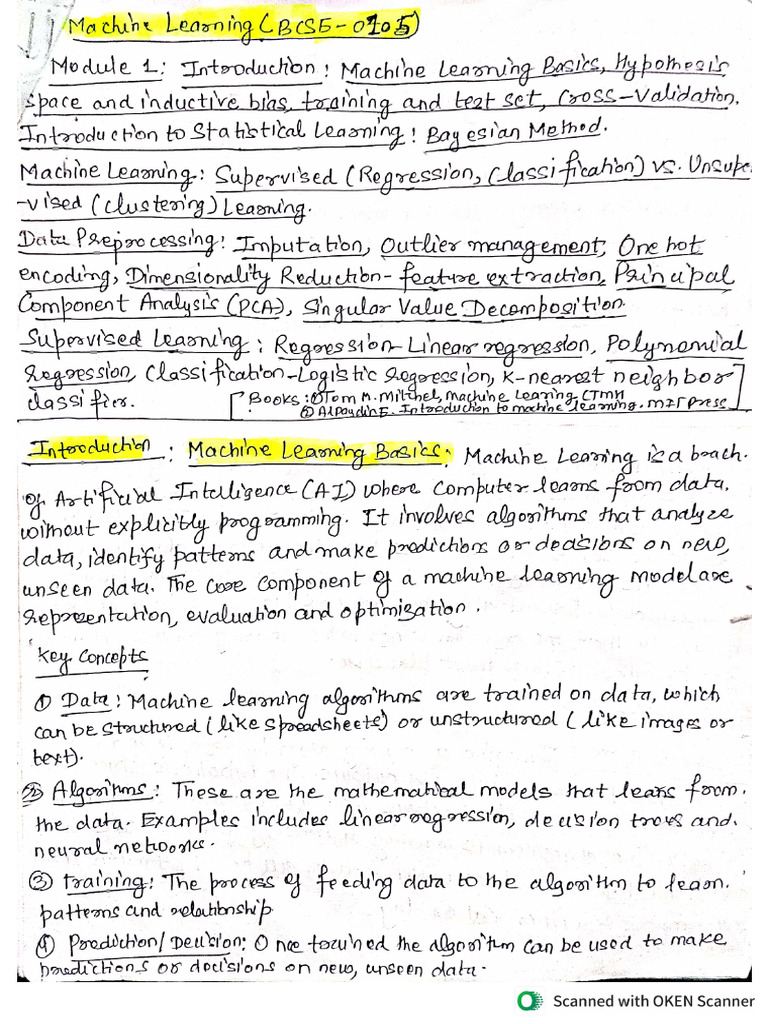 Machine Learning (BCSE-0105)
Module 1: Introduction: Machine Learning Basics, Hypothesis
space and inductive bias, training and test set, Cross-Validation.
Introduction to Statistical Learning: Bayesian Method.
Machine Learning: Supervised (Regression, Classification) vs. Unsupe
-vised (Clustering) Learning.
Data Preprocessing: Imputation, Outlier management, One hot
encoding, Dimensionality Reduction- feature extraction, Principal
Component Analysis (PCA), Singular Value Decomposition
Supervised Learning: Regression-Linear regression, Polynomial
Regression, Classification-Logistic Regression, K-nearest neighbor
classifier. [Books: ① Tom M. Mitchel, Machine Learning, CTMH
② Alpaydin E. Introduction to machine learning. MIT press]
Introduction: Machine Learning Basics: Machine Learning is a brach.
of Artificial Intelligence (AI) where Computer learns from data,
without explicitly programming. It involves algorithms that analyze
data, identify patterns and make predictions or decisions on new,
unseen data. The core component of a machine learning model are
representation, evaluation and optimisation.
Key Concepts
① Data: Machine learning algorithms are trained on data, which
can be structured (like spreadsheets) or unstructured (like images or
text).
② Algorithms: These are the mathematical models that learn from.
the data. Examples includes linear regression, decision trees and.
neural networks.
③ Training: The process of feeding data to the algorithm to learn.
patterns and relationship
④ Prediction/Decision: Once trained the algorithm can be used to make
predictions or decisions on new, unseen data.
Scanned with OKEN Scanner